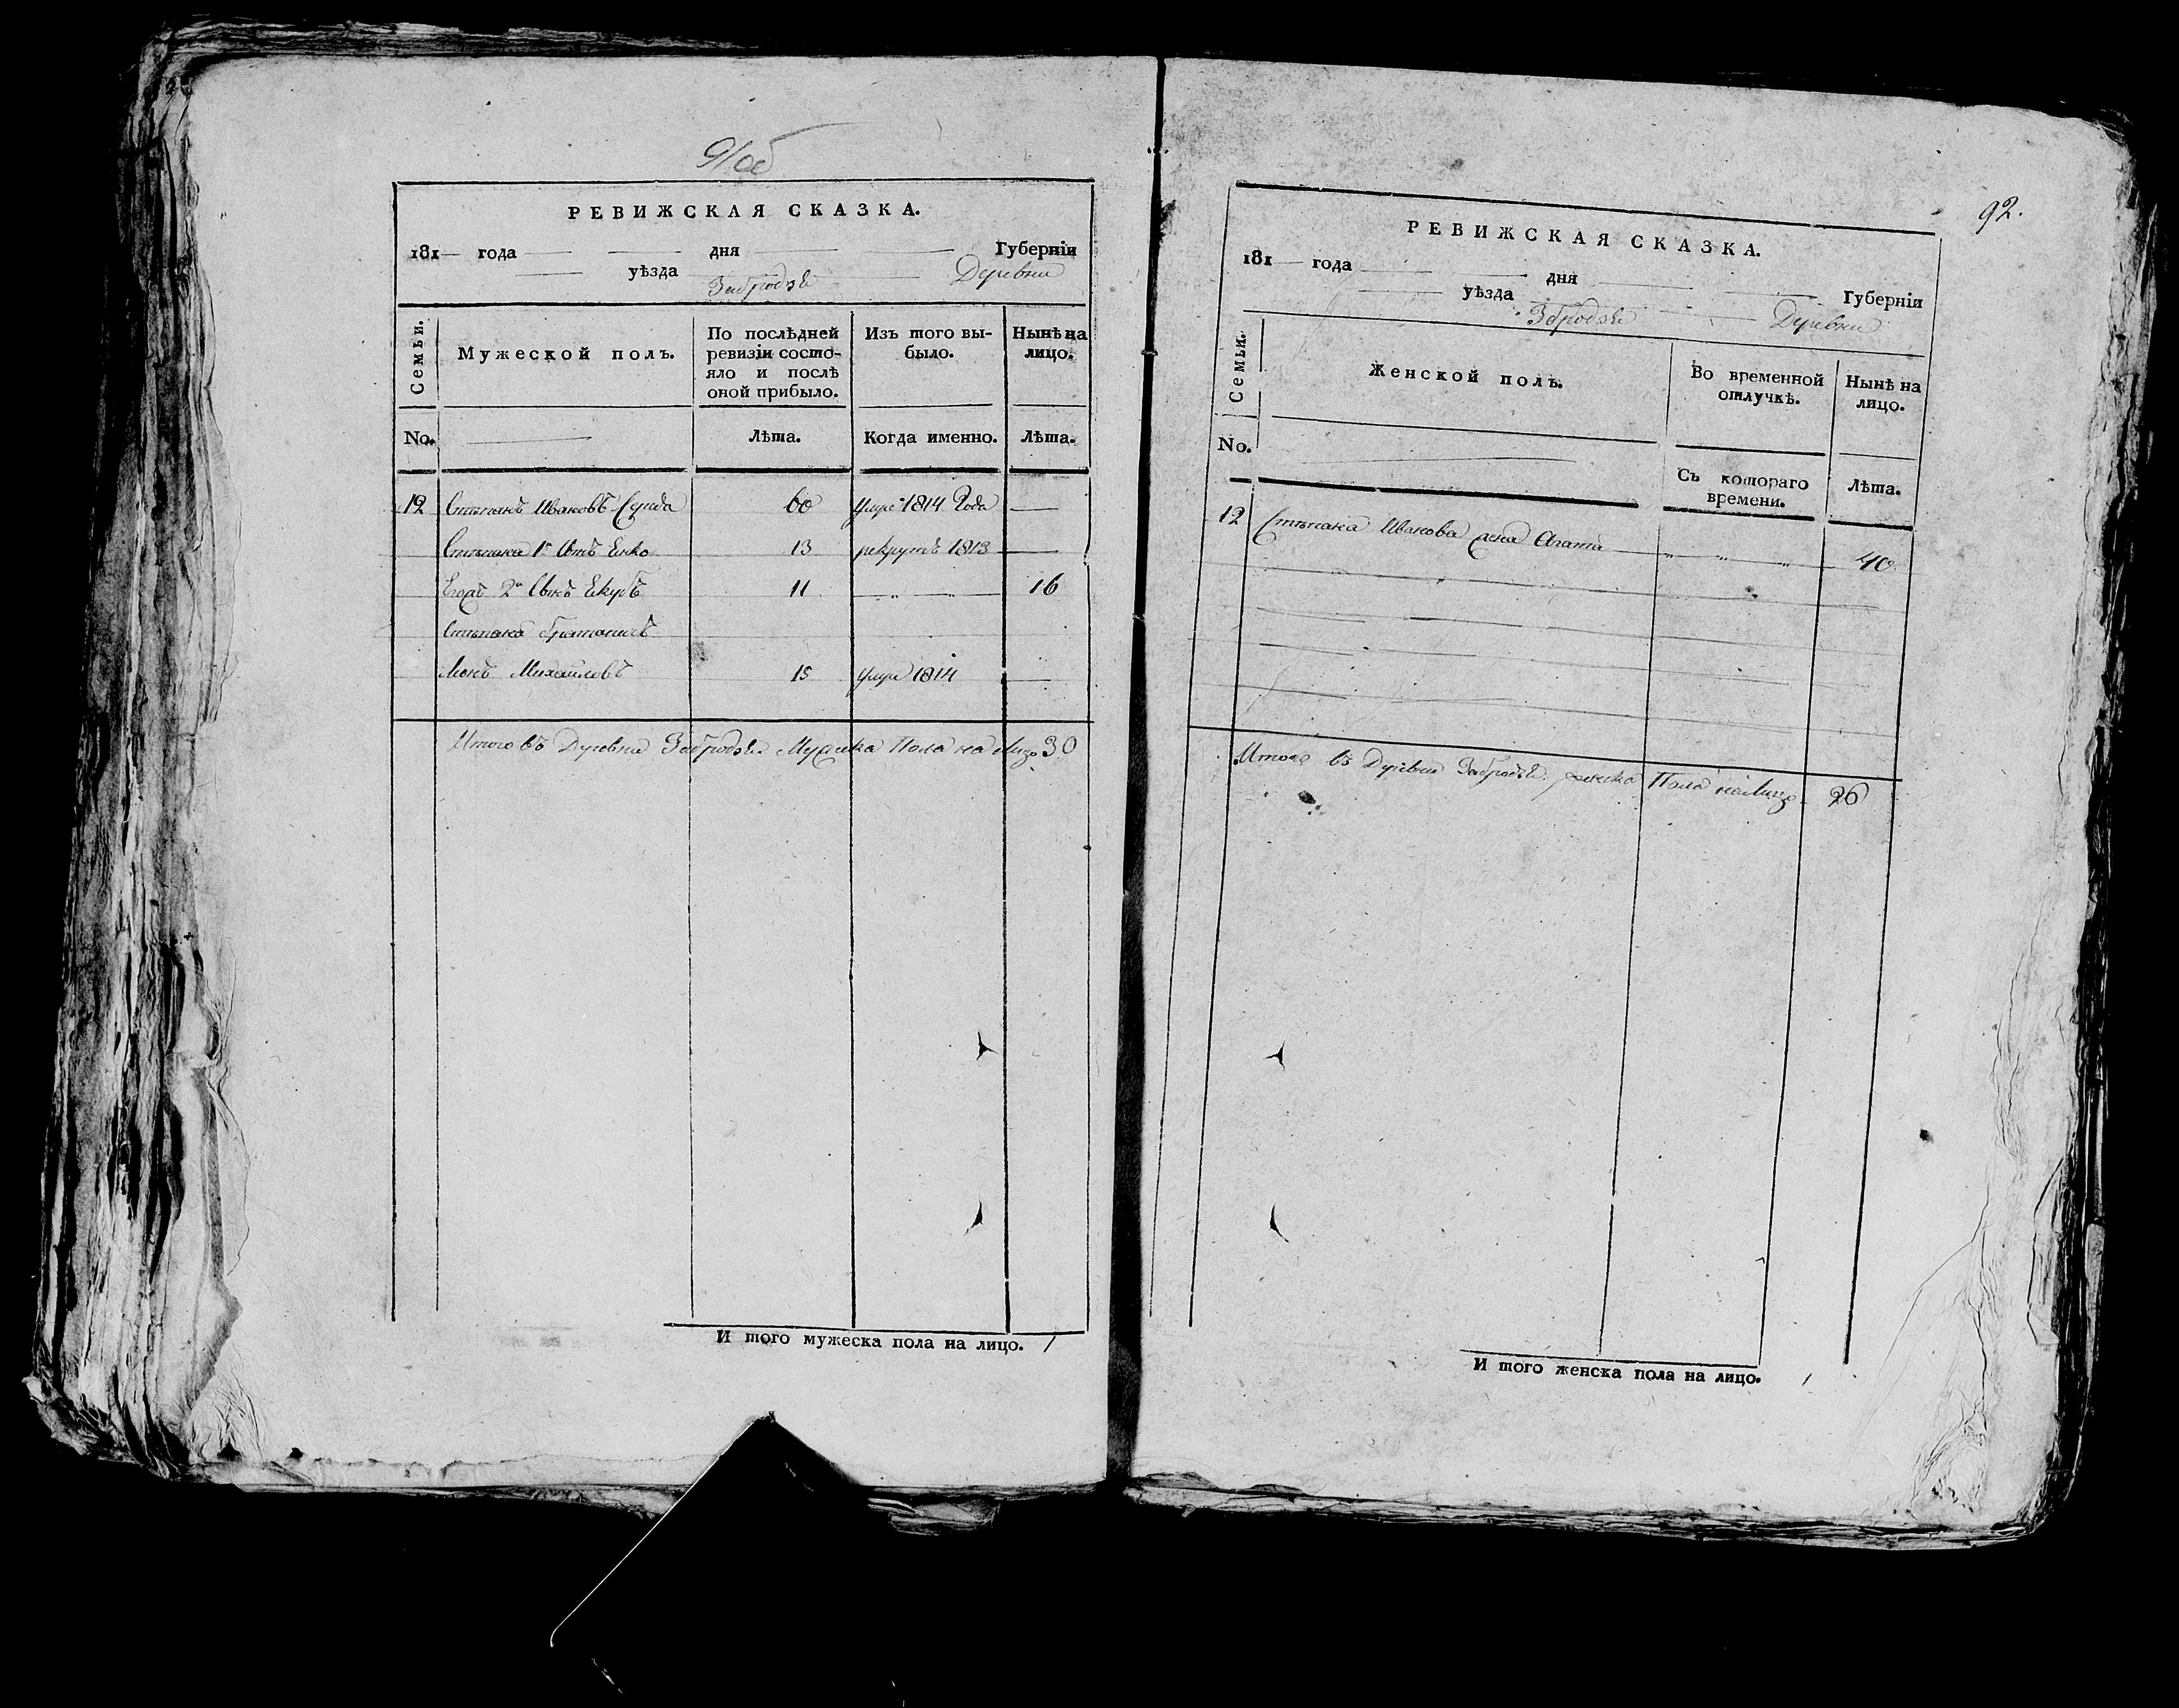 91об
РЕВИЖСКАЯ СКАЗКА.
181 года дня Губерніи
уѣзда Забродзе Деревни
Семьи.
Мужеской полъ.
По послѣдней ревизіи состояло и послѣ оной прибыло.
Изъ того выбыло.
Нынѣ на лицо.
No.
Лѣта.
Когда именно.
Лѣта.
12 Степанъ Ивановъ 60 умре 1814 Года
Степана 1й Сынъ 13 рекрутъ 1813
2й Сынъ 11 16
Степана братаничъ
Михайловъ 15 умре 1814
Итого въ Деревни Забродзе Мужска Пола на Лицо 30
И того мужеска пола на лицо. 1
92.
РЕВИЖСКАЯ СКАЗКА.
181 года дня Губерніи
уѣзда Забродзе Деревни
Семьи.
Женской полъ.
Во временной отлучкѣ.
Нынѣ на лицо.
No.
Съ котораго времени.
Лѣта.
12 Степана Иванова жена Агата 40
Итого въ Деревни Забродзе женска Пола на Лицо 26
И того женска пола на лицо. 1